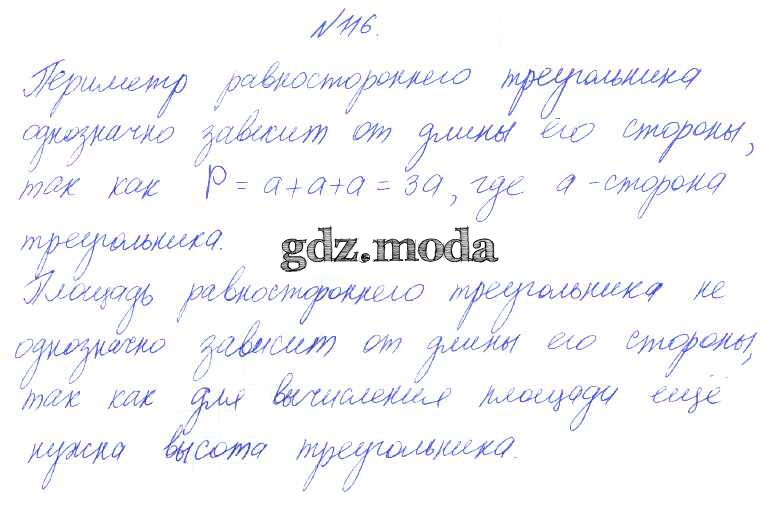 №116.
Периметр равностороннего треугольника
однозначно зависит от длины его стороны,
так как P = a+a+a = 3a, где a - сторона
треугольника.
gdz.moda
Площадь равностороннего треугольника не
однозначно зависит от длины его стороны,
так как для вычисления площади ещё
нужна высота треугольника.